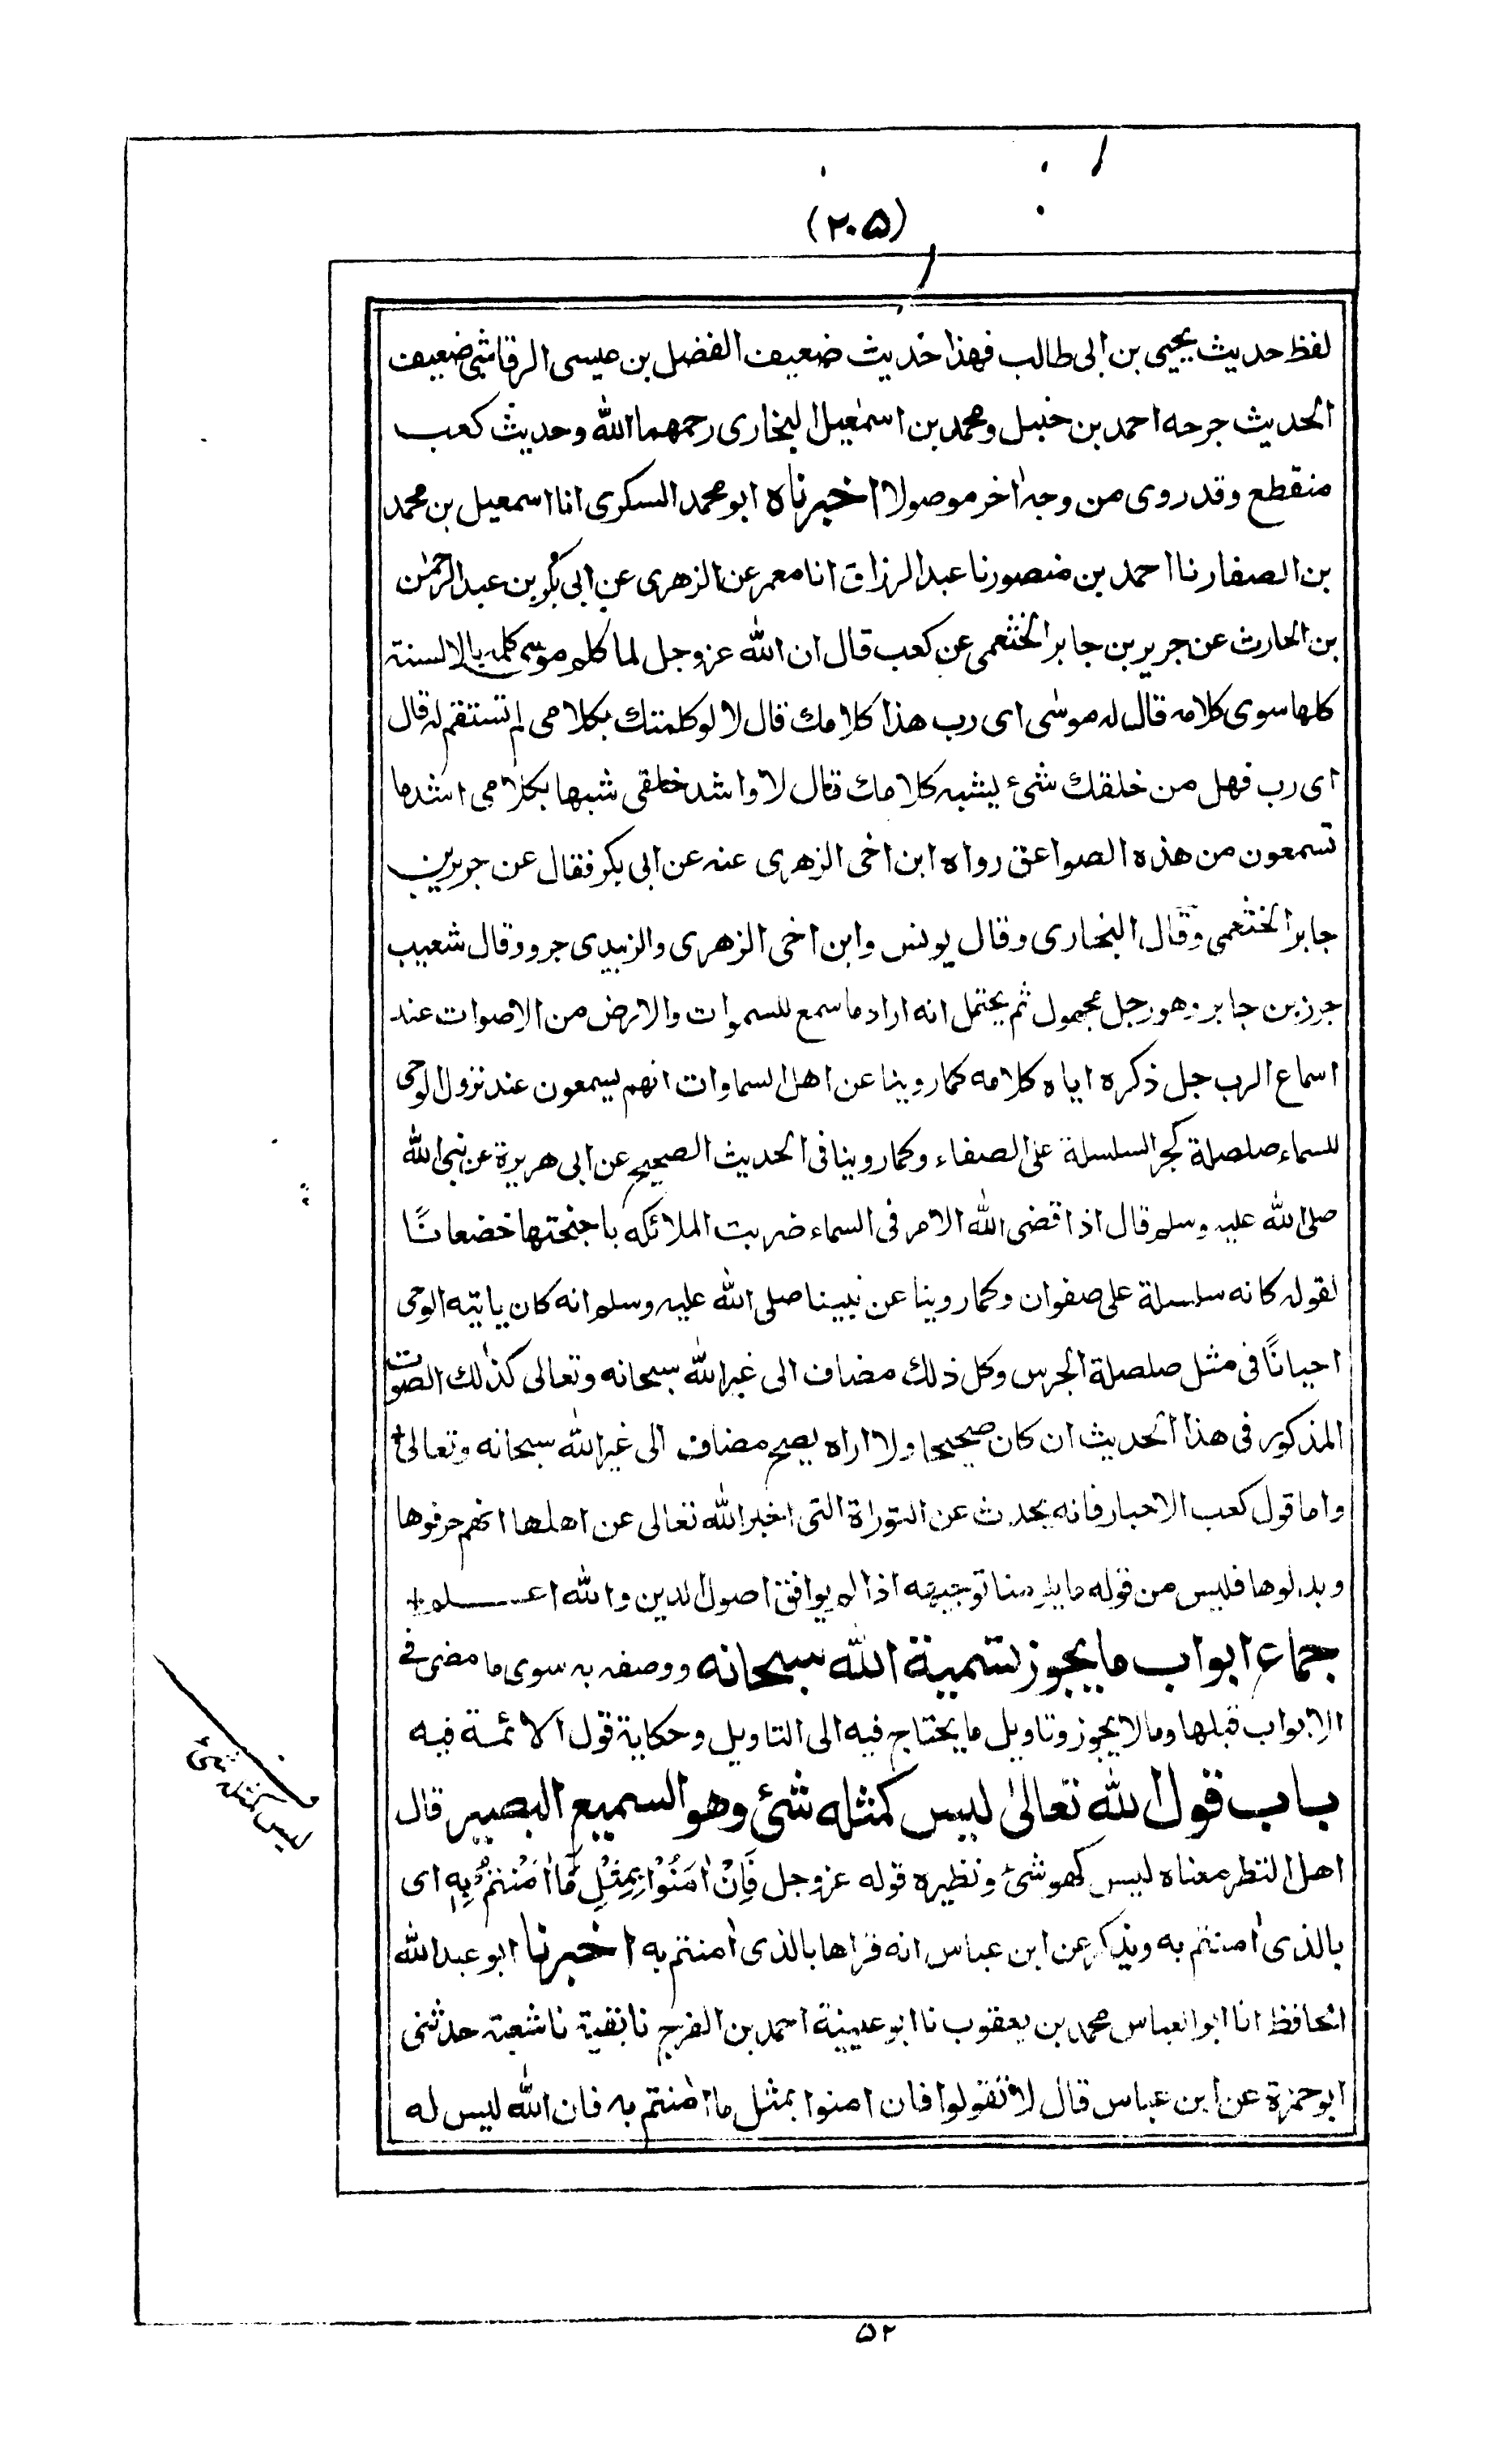 (۲۰۵)
لفظ حديث يحيى بن ابى طالب فهذا حديث ضعيف الفضل بن عيسى الرقاشى ضعيف
الحديث جرحه احمد بن حنبل ومحمد بن اسمٰعيل البخارى رحمهما الله وحديث كعب
منقطع وقد روى من وجه اٰخر موصولا اخبرناه ابو محمد السكرى انا اسمعيل بن محمد
بن الصفار نا احمد بن منصور نا عبد الرزاق انا معمر عن الزهرى عن ابى بكر بن عبد الرحمٰن
بن الحارث عن جرير بن جابر الخثعمى عن كعب قال ان الله عز وجل لما كلم موسى كلمه بالالسنة
كلها سوى كلامه قال له موسٰى اى رب هذا كلامك قال لا لو كلمتك بكلامى لم تستقم له قال
اى رب فهل من خلقك شئ يشبه كلامك قال لا واشد خلقى شبها بكلامى اشد ما
تسمعون من هذه الصواعق رواه ابن اخى الزهرى عنه عن ابى بكر فقال عن جرير بن
جابر الخثعمى وقال البخارى وقال يونس وابن اخى الزهرى والزبيدى جرو وقال شعيب
جرز بن جابر وهو رجل مجهول ثم يحتمل انه اراد ما سمع للسموات والارض من الاصوات عند
اسماع الرب جل ذكره اياه كلامه كما روينا عن اهل السماوات انهم يسمعون عند نزول الوحى
للسماء صلصلة كجر السلسلة على الصفاء وكما روينا فى الحديث الصحيح عن ابى هريرة عن نبى الله
صلى الله عليه وسلم قال اذا قضى الله الامر فى السماء ضربت الملائكه باجنحتها خضعانًا
لقوله كانه سلسلة على صفوان وكما روينا عن نبينا صلى الله عليه وسلم انه كان ياتيه الوحى
احيانًا فى مثل صلصلة الجرس وكل ذلك مضاف الى غير الله سبحانه وتعالى كذٰلك الصوت
المذكور فى هذا الحديث ان كان صحيحا ولا اراه يصح مضاف الى غير الله سبحانه وتعالى+
واما قول كعب الاحبار فانه يحدث عن التوراة التى اخبر الله تعالى عن اهلها انهم حرفوها
وبدلوها فليس من قوله ما يلزمنا توجيهه اذا لم يوافق اصول الدين والله اعـــلم+
جماع ابواب ما يجوز تسمية الله سبحانه ووصفه به سوى ما مضى فى
الابواب قبلها وما لا يجوز وتاويل ما يحتاج فيه الى التاويل وحكاية قول الائمة فيه
باب قول الله تعالىٰ ليس كمثله شئ وهو السميع البصير قال
اهل النظر معناه ليس كهو شئ ونظيره قوله عز وجل فَاِنْ اٰمَنُوْا بِمِثْلِ مَا اٰمَنْتُمْ بِهٖ اى
بالذى اٰمنتم به ويذكر عن ابن عباس انه قراها بالذى اٰمنتم به اخبرنا ابو عبد الله
الحافظ انا ابو العباس محمد بن يعقوب نا ابو عيينة احمد بن الفرج نا بقية نا شعبة حدثنى
ابو حمزة عن ابن عباس قال لا تقولوا فان امنوا بمثل ما اٰمنتم به فان الله ليس له
ليس كمثله شئ
۵۲